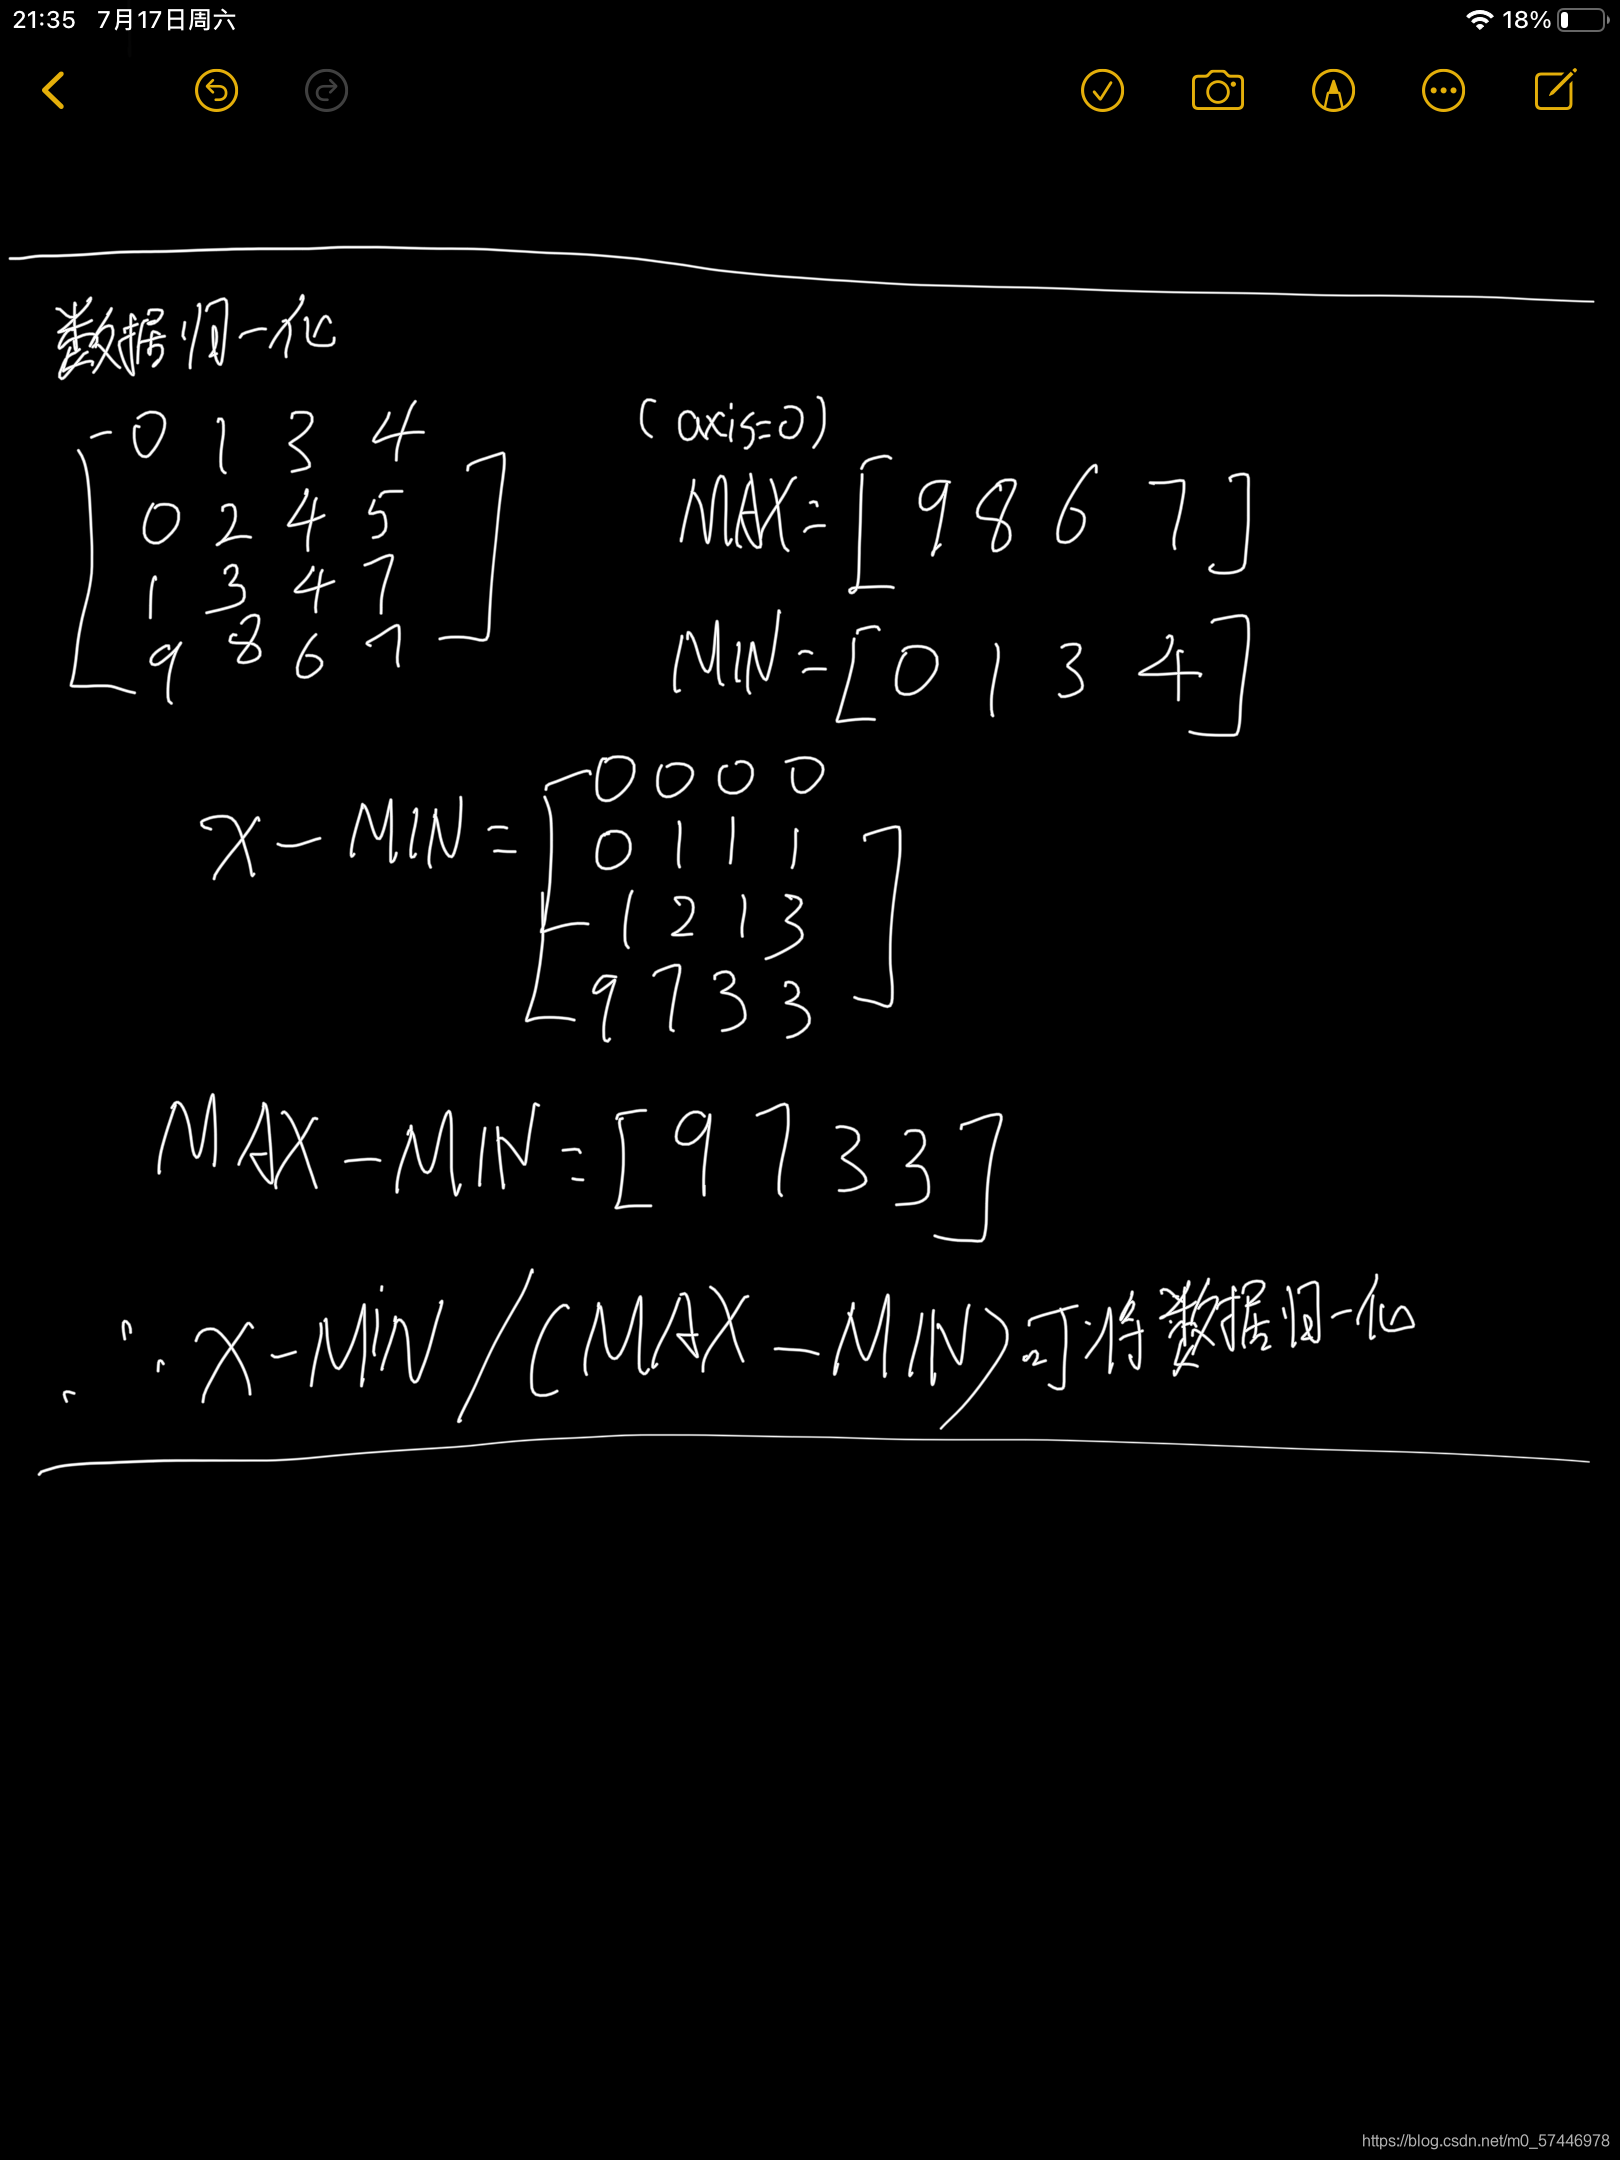 21:35 7月17日周六
18%
数据归一化
0 1 3 4
0 2 4 5
1 3 4 7
9 8 6 7
(axis=0)
MAX=[9 8 6 7]
MIN=[0 1 3 4]
X-MIN=
0 0 0 0
0 1 1 1
1 2 1 3
9 7 3 3
MAX-MIN=[9 7 3 3]
∴ X-MiN/(MAX-MIN)可将数据归一化
https://blog.csdn.net/m0_57446978